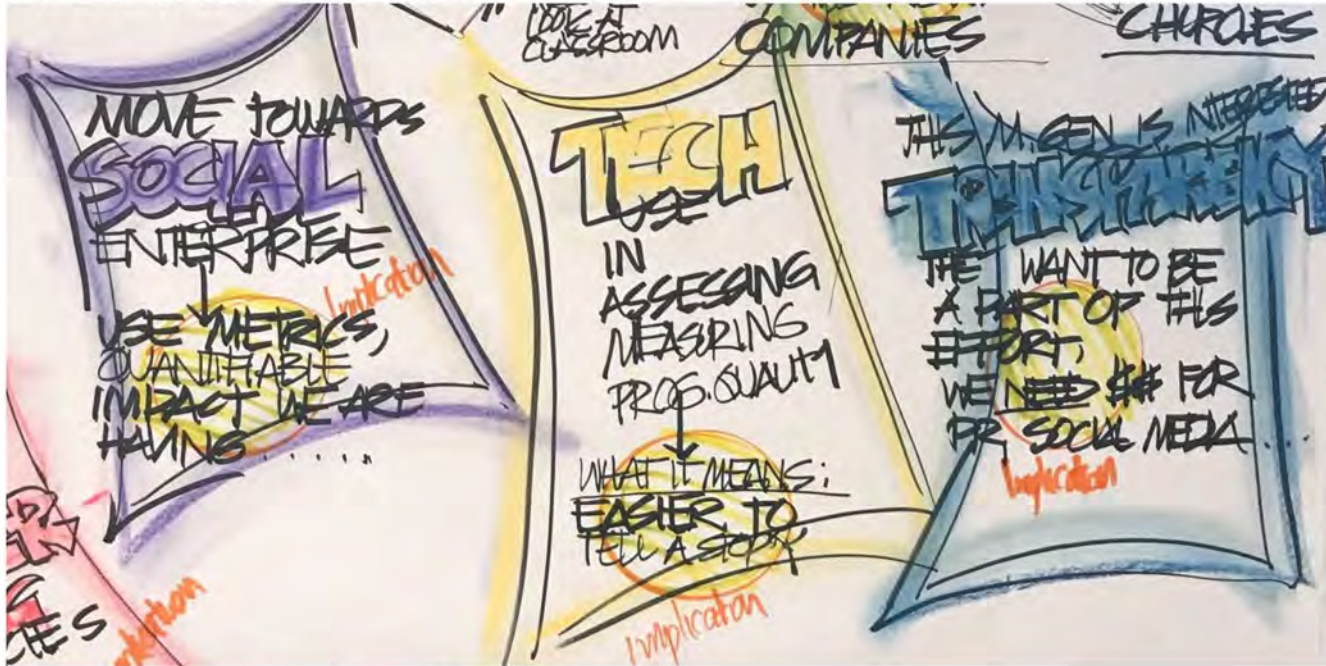 LOOK AT
CLASSROOM
COMPANIES
CHURCHES
MOVE TOWARDS
SOCIAL
ENTERPRISE
Implication
USE METRICS,
QUANTIFIABLE
IMPACT WE ARE
HAVING ......
TECH
USE
IN
ASSESSING
MEASURING
PROG. QUALITY
WHAT IT MEANS:
EASIER TO
TELL A STORY
Implication
THIS M. GEN IS INTERESTED
TRANSPARENCY
THE WANT TO BE
A PART OF THIS
EFFORT,
WE NEED $$ FOR
PR, SOCIAL MEDIA ....
Implication